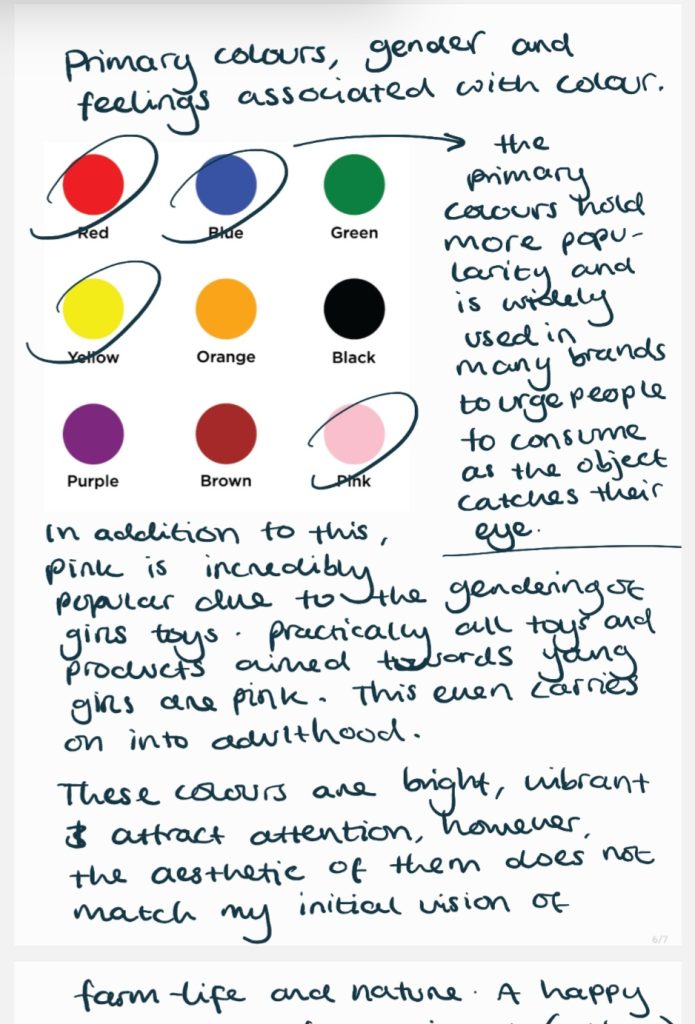 Primary colours, gender and
feelings associated with colour.
Red
Blue
Green
Yellow
Orange
Black
Purple
Brown
Pink
the
primary
colours hold
more popu-
larity and
is widely
used in
many brands
to urge people
to consume
as the object
catches their
eye.
In addition to this,
pink is incredibly
popular due to the gendering of
girls toys. Practically all toys and
products aimed towards young
girls are pink. This even carries
on into adulthood.
These colours are bright, vibrant
& attract attention, however,
the aesthetic of them does not
match my initial vision of
6/7
farm-life and nature. A happy